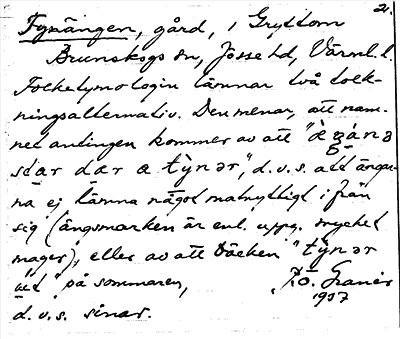 21.
Tynängen, gård, i Gryttom
Brunskogs sn, Jösse hd, Värml. l.
Folketymologin lämnar två tolk-
ningsalternativ. Den menar, att nam-
net antingen kommer av att
star där a tỳnər", d.v.s. att ängar-
na ej lämna något matnyttigt ifrån
sig (ängsmarken är enl. uppg. mycket
mager), eller av att bäcken "tỳnər
ut" på sommaren,
d.v.s. sinar.
Granér
1937